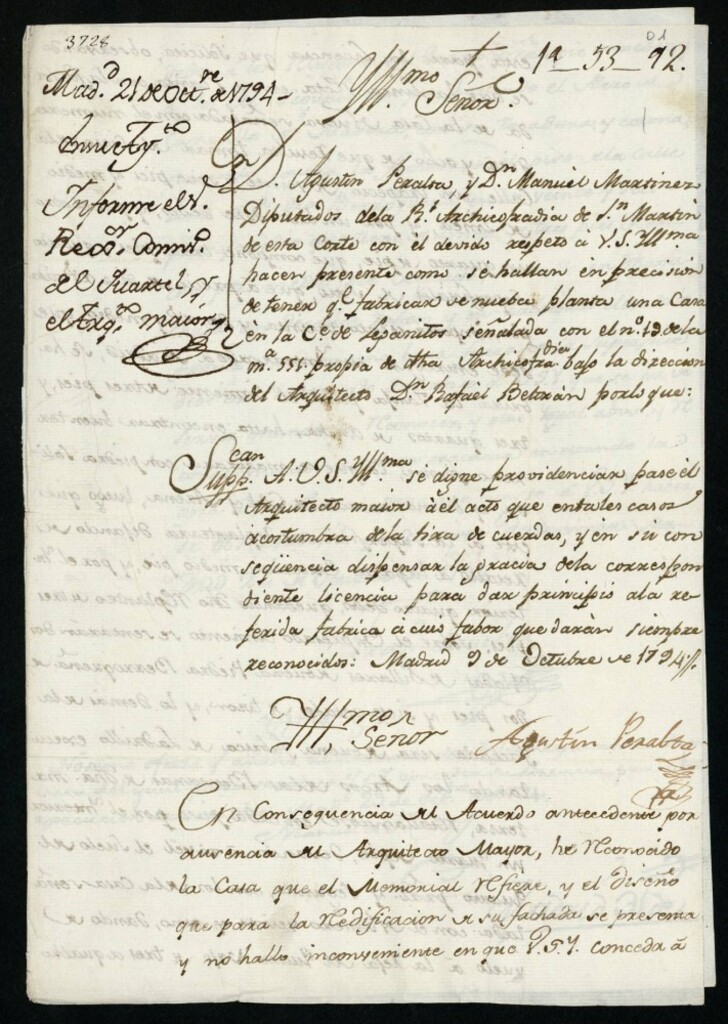 3728
01
1ª_53_92.
Yllmo. Señor.
Mad.d 21 de Oct.re de 1794-
Informe el S.r
Rexor Comiso.
del Quartel, y
el Arq.to maior
D.n Agustin Peralta, y D.n Manuel Martinez
Diputados dela Rl. Archicofradia de S.n Martin
de esta Corte con el devido respeto á V.S. Yllma
hacen presente como se hallan en precision
de tener q.e fabricar de nueba planta una Casa
en la C.e de Leganitos señalada con el n.º 19 de la
m.a 551 propia de dha Archicofradia bajo la direccion
del Arquitecto D.n Rafael Beltran por lo que:
Suppcan. A. V. S. Yllma se digne providenciar pase él
Arquitecto maior á él acto que entales casos
acostumbra de la tira de cuerdas, y en su con
seqüencia dispensar la gracia dela correspon
diente licencia para dar principio ala re
ferida fabrica á cuio fabor quedarán siempre
reconocidos: Madrid 9 de Octubre de 1794
Yllmo. Señor
Agustín Peralta
En Consequencia del Acuerdo antecedente por
ausencia del Arquitecto Mayor, he reconocido
la Casa que el Memorial refiere, y el diseño
que para la redificacion de su fachada se presenta
y no hallo inconveniente en que V.S.Y. conceda á